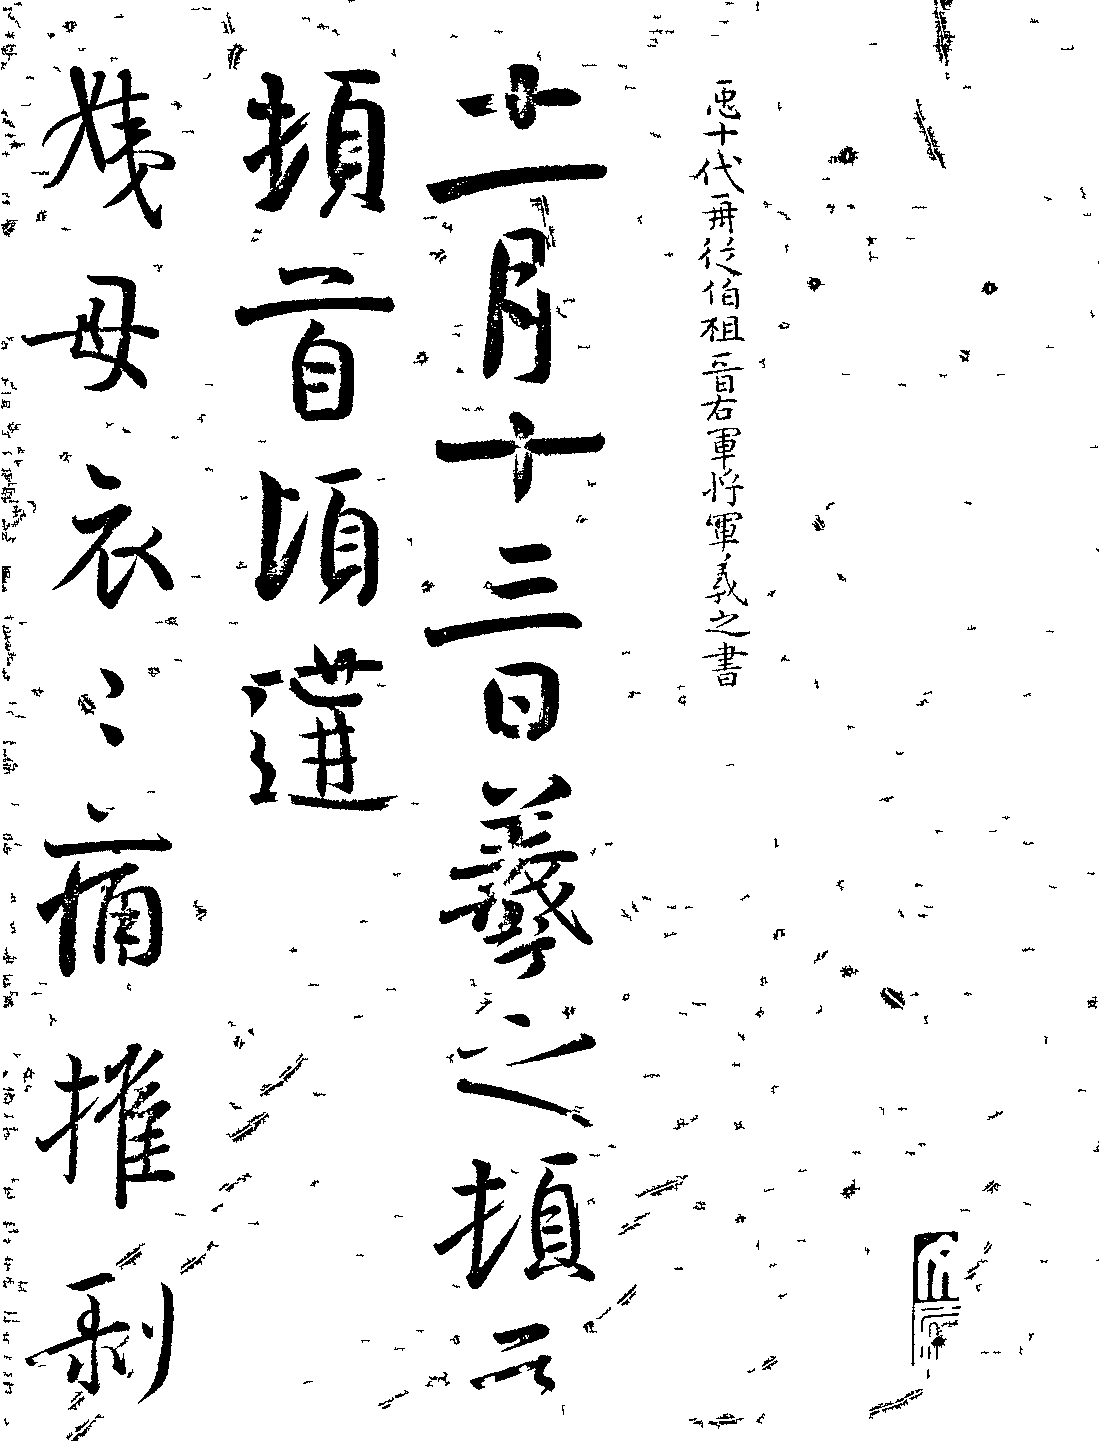 𢘑十代再從伯祖晉右軍將軍羲之書
十一月十三日羲之頓首
頓首頃遘
姨母哀〻痛摧剝